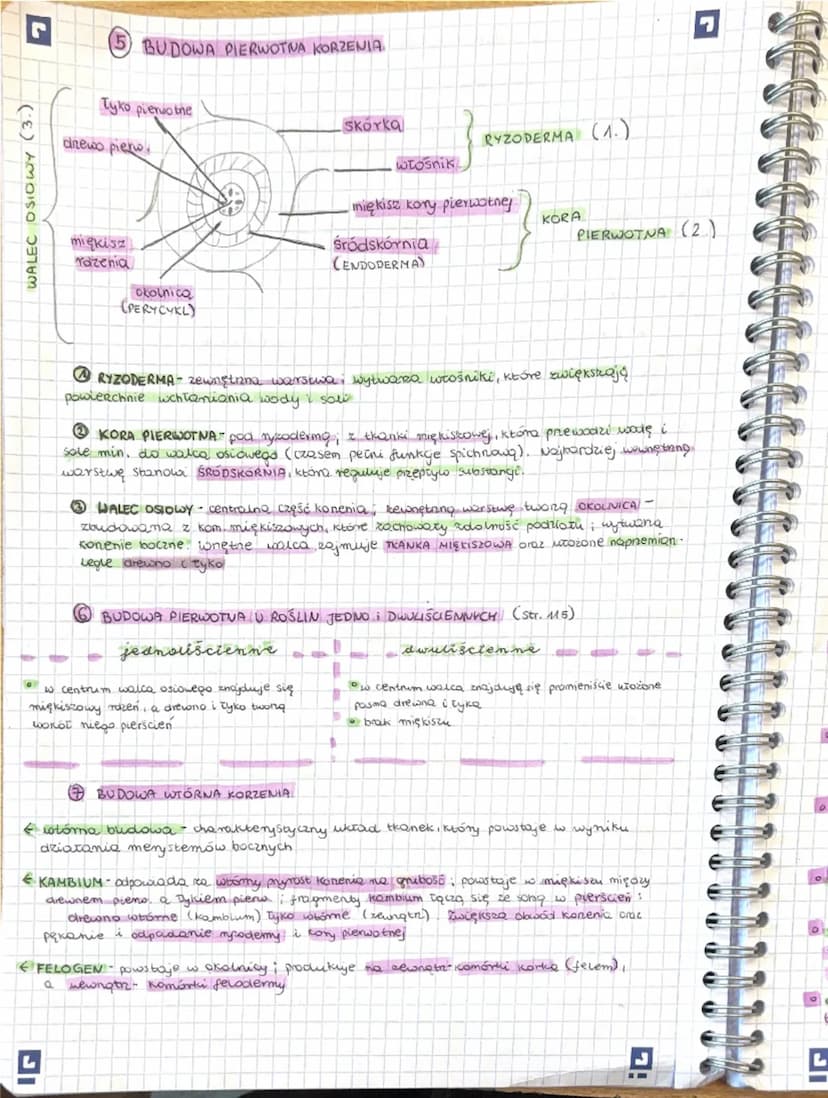 5 BUDOWA PIERWOTNA KORZENIA
WALEC OSIOWY (3.)
łyko pierwotne
drewo pierw.
miękisz
rdzenia
okolnica
(PERYCYKL)
skórka
włośnik
RYZODERMA (1.)
miękisz kory pierwotnej
śródskórnia
(ENDODERMA)
KORA
PIERWOTNA (2.)
1 RYZODERMA - zewnętrzna warstwa; wytwarza włośniki, które zwiększają
powierzchnie wchłaniania wody i soli
2 KORA PIERWOTNA - pod ryzodermą; z tkanki miękiszowej, która przewodzi wodę i
sole min. do walca osiowego (czasem pełni funkcje spichrzową). Najbardziej wewnętrzną
warstwę stanowi ŚRÓDSKÓRNIA, która reguluje przepływ substancji.
3 WALEC OSIOWY - centralna część korzenia; zewnętrzną warstwę tworzą OKOLNICA -
zbudowana z kom. miękiszowych, które zachowały zdolność podziału; wytwarza
korzenie boczne. Wnętrze walca zajmuje TKANKA MIĘKISZOWA oraz ułożone naprzemian-
legle drewno i łyko
6 BUDOWA PIERWOTNA U ROŚLIN JEDNO i DWULIŚCIENNYCH (str. 115)
jednoliścienne
dwuliścienne
• w centrum walca osiowego znajduje się
miękiszowy rdzeń, a drewno i łyko tworzą
wokół niego pierścień
• w centrum walca znajdują się promieniście ułożone
pasma drewna i łyka
• brak miękiszu
7 BUDOWA WTÓRNA KORZENIA
← wtórna budowa - charakterystyczny układ tkanek, który powstaje w wyniku
działania merystemów bocznych
← KAMBIUM - odpowiada za wtórny przyrost korzenia na grubość; powstaje w miękiszu między
drewnem pierw. a łykiem pierw.; fragmenty kambium łączą się ze sobą w pierścień:
drewno wtórne (kambium) łyko wtórne (zewnątrz). Zwiększa obwód korzenia oraz
pękanie i odpadanie ryzodermy i kory pierwotnej
← FELOGEN - powstaje w okolnicy; produkuje na zewnątrz - komórki korka (felem),
a wewnątrz - komórki felodermy